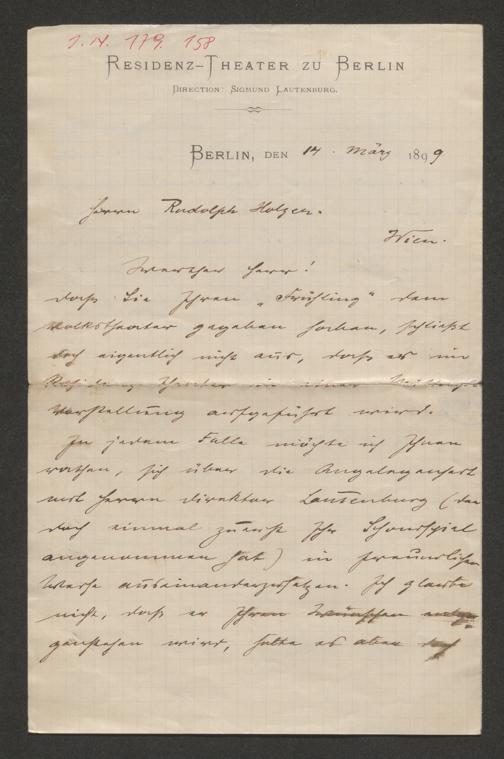 J. N. 179.158
RESIDENZ-THEATER ZU BERLIN
DIRECTION: SIGMUND LAUTENBURG.
BERLIN, DEN 14. März 1899
Herrn Rudolph Holzer.
Wien.
Werther Herr!
Daß Sie Ihren „Frühling" dem
Volkstheater gegeben haben, schließt
doch eigentlich nicht aus, daß es im
Residenz-Theater in einer
Vorstellung aufgeführt wird.
In jedem Falle möchte ich Ihnen
rathen, sich über die Angelegenheit
mit Herrn Direktor Lautenburg (der
doch einmal zuerst Ihr Schauspiel
angenommen hat) in freundlicher
Weise auseinanderzusetzen. Ich glaube
nicht, daß er Ihren Wünschen entge-
genstehen wird, halte es aber